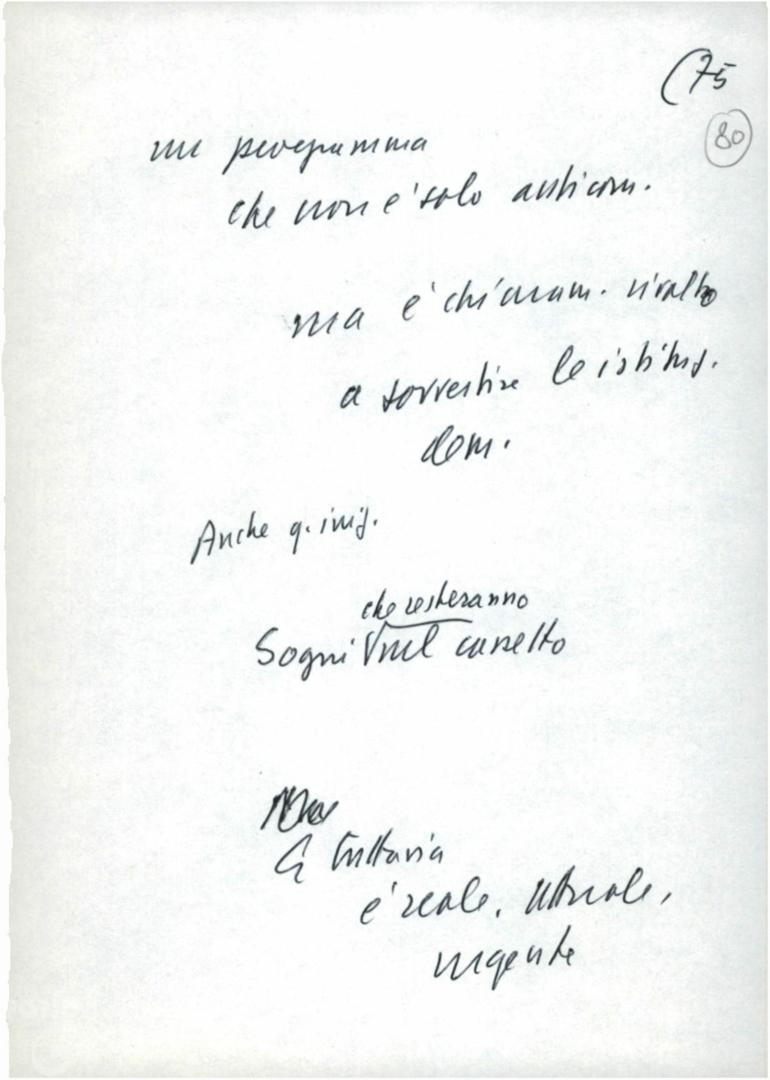 (75
80
un programma
che non è solo anticom.
ma è chiaram. rivolto
a sovvertire le istituz.
dem.
Anche q. ini.
che resteranno
Sogni nel cassetto
E tuttavia
è reale, attuale,
urgente